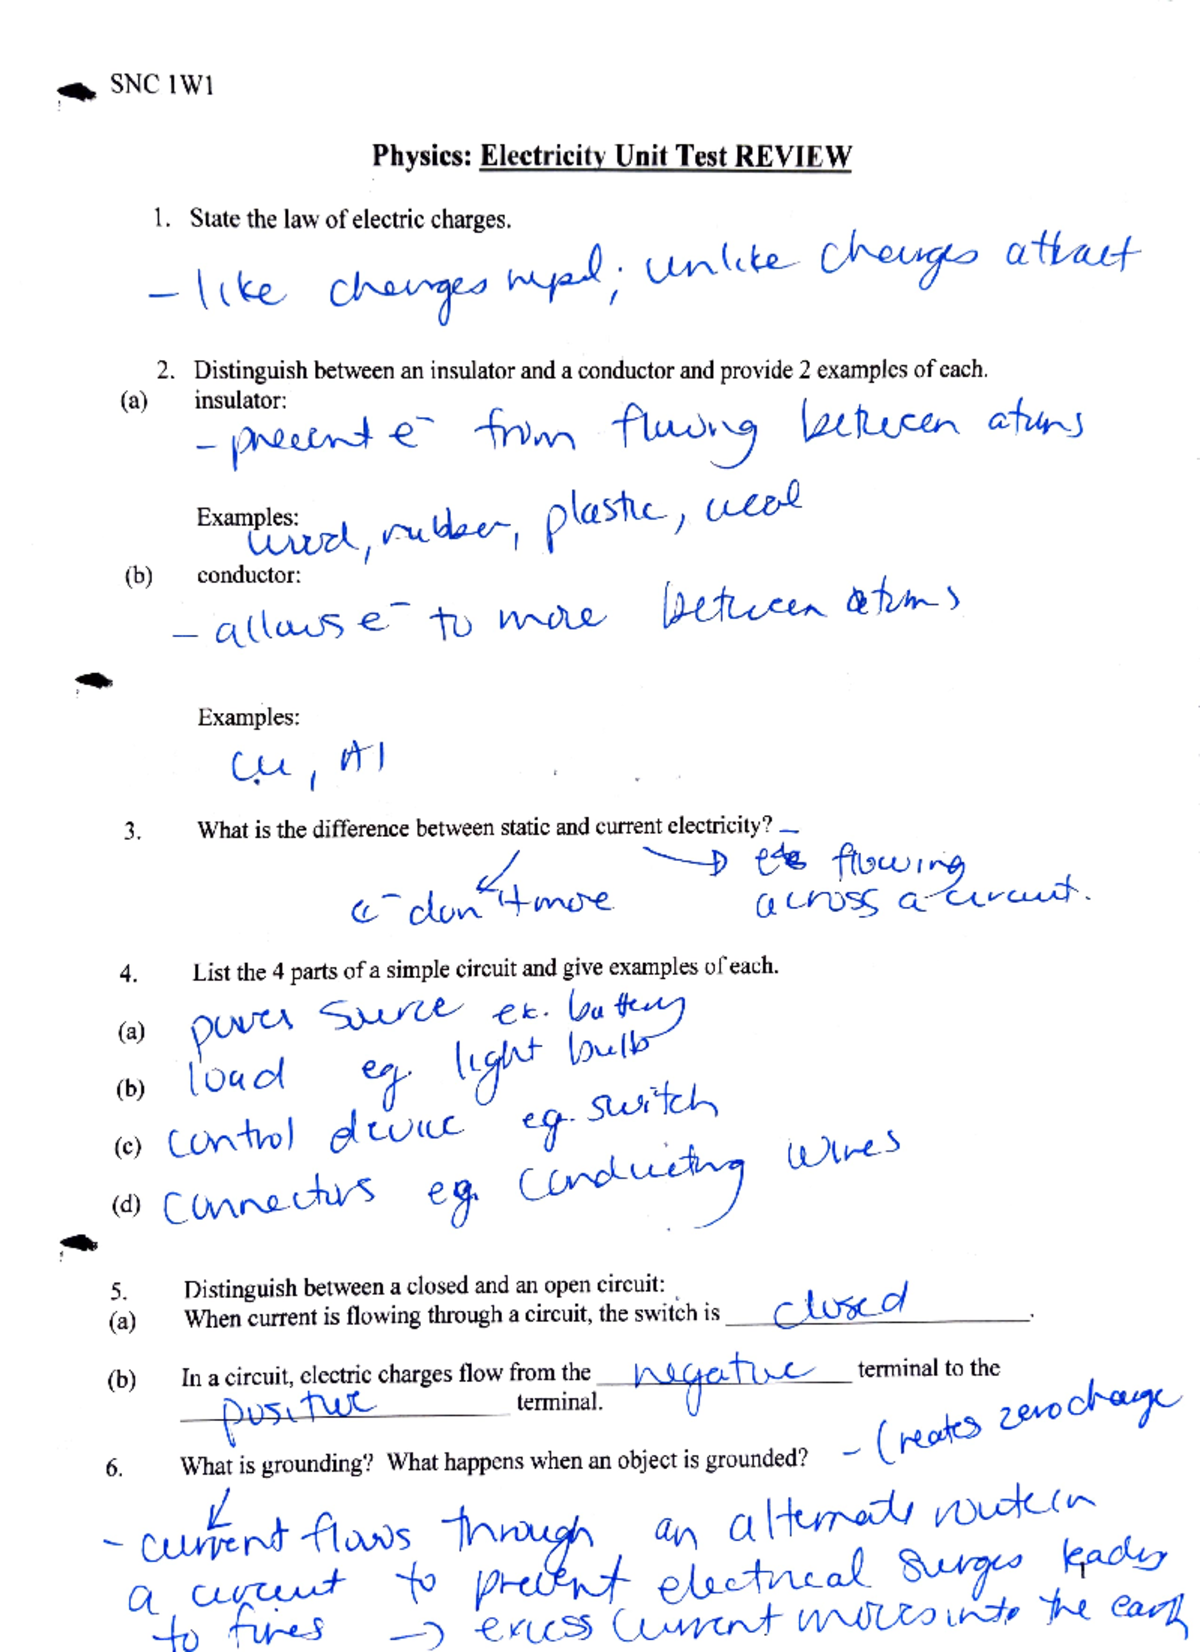 SNC 1W1
Physics: Electricity Unit Test REVIEW
1. State the law of electric charges.
- like charges repel; unlike charges attract
2. Distinguish between an insulator and a conductor and provide 2 examples of each.
(a) insulator:
- prevent e⁻ from flowing between atoms
Examples:
wood, rubber, plastic, wool
(b) conductor:
- allows e⁻ to move between atoms
Examples:
Cu, Al
3. What is the difference between static and current electricity?
e⁻ don't move
flowing
across a circuit.
4. List the 4 parts of a simple circuit and give examples of each.
(a) power source ex. battery
(b) load eg. light bulb
(c) control device eg. switch
(d) connectors eg. conducting wires
5. Distinguish between a closed and an open circuit:
(a) When current is flowing through a circuit, the switch is closed.
(b) In a circuit, electric charges flow from the negative terminal to the
positive terminal.
6. What is grounding? What happens when an object is grounded? - Creates zero charge
- current flows through an alternate route in
a circuit to prevent electrical surges leading
to fires → excess current moves into the earth